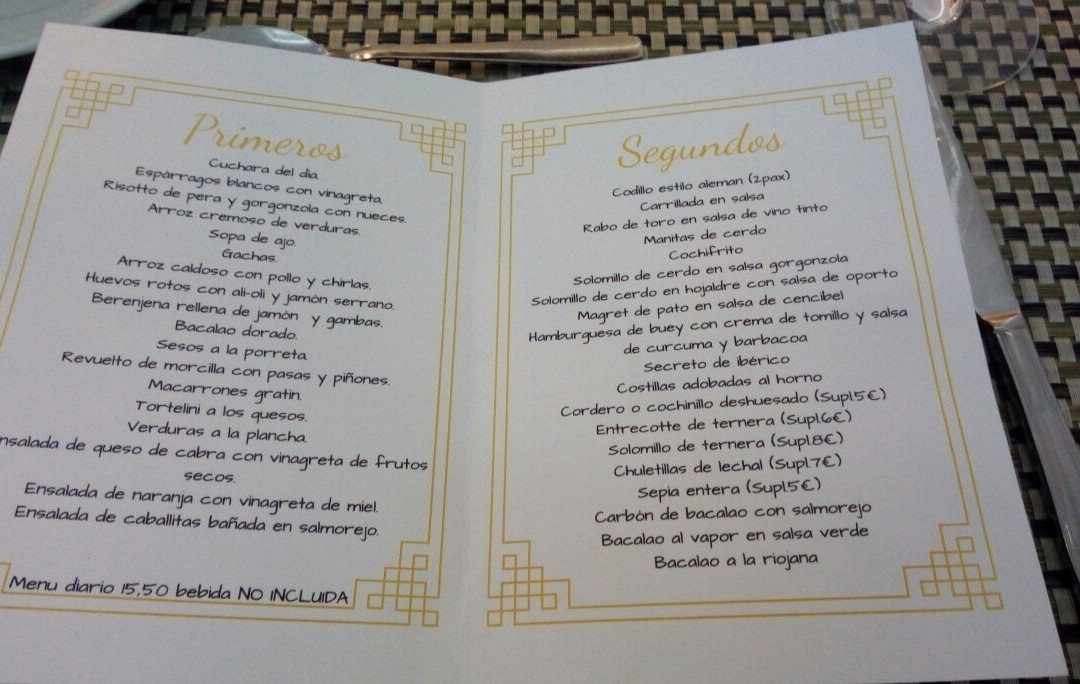 Primeros
Cuchara del día.
Espárragos blancos con vinagreta.
Risotto de pera y gorgonzola con nueces.
Arroz cremoso de verduras.
Sopa de ajo.
Gachas.
Arroz caldoso con pollo y chirlas.
Huevos rotos con ali-oli y jamón serrano.
Berenjena rellena de jamón y gambas.
Bacalao dorado.
Sesos a la porreta.
Revuelto de morcilla con pasas y piñones.
Macarrones gratin.
Tortelini a los quesos.
Verduras a la plancha.
nsalada de queso de cabra con vinagreta de frutos
secos.
Ensalada de naranja con vinagreta de miel.
Ensalada de caballitas bañada en salmorejo.
Menu diario 15.50 bebida NO INCLUIDA
Segundos
Codillo estilo aleman (2pax)
Carrillada en salsa
Rabo de toro en salsa de vino tinto
Manitas de cerdo
Cochifrito
Solomillo de cerdo en salsa gorgonzola
Solomillo de cerdo en hojaldre con salsa de oporto
Magret de pato en salsa de cencibel
Hamburguesa de buey con crema de tomillo y salsa
de curcuma y barbacoa
Secreto de ibérico
Costillas adobadas al horno
Cordero o cochinillo deshuesado (Supl.5€)
Entrecotte de ternera (Supl.6€)
Solomillo de ternera (Supl.8€)
Chuletillas de lechal (Supl.7€)
Sepia entera (Supl.5€)
Carbón de bacalao con salmorejo
Bacalao al vapor en salsa verde
Bacalao a la riojana